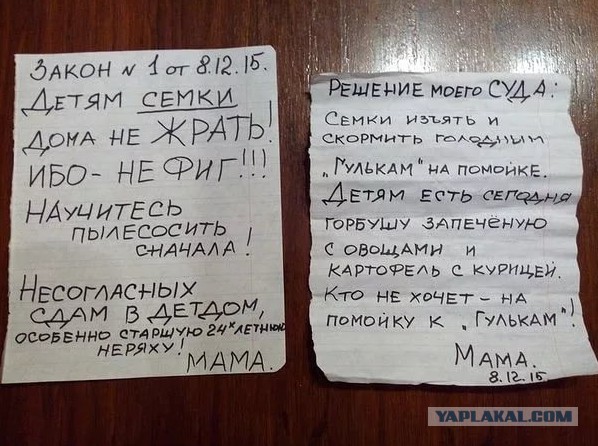 ЗАКОН N 1 от 8.12.15.
ДЕТЯМ СЕМКИ
ДОМА НЕ ЖРАТЬ!
ИБО - НЕ ФИГ!!!
НАУЧИТЕСЬ
ПЫЛЕСОСИТЬ
СНАЧАЛА!
НЕСОГЛАСНЫХ
СДАМ В ДЕТДОМ,
ОСОБЕННО СТАРШУЮ 24х ЛЕТНЮЮ
НЕРЯХУ!
МАМА.
РЕШЕНИЕ МОЕГО СУДА:
СЕМКИ ИЗЪЯТЬ И
СКОРМИТЬ ГОЛОДНЫМ
„ГУЛЬКАМ" НА ПОМОЙКЕ.
ДЕТЯМ ЕСТЬ СЕГОДНЯ
ГОРБУШУ ЗАПЕЧЁНУЮ
С ОВОЩАМИ И
КАРТОФЕЛЬ С КУРИЦЕЙ.
КТО НЕ ХОЧЕТ - НА
ПОМОЙКУ К „ГУЛЬКАМ"!
МАМА.
8.12.15
YAPLAKAL.COM